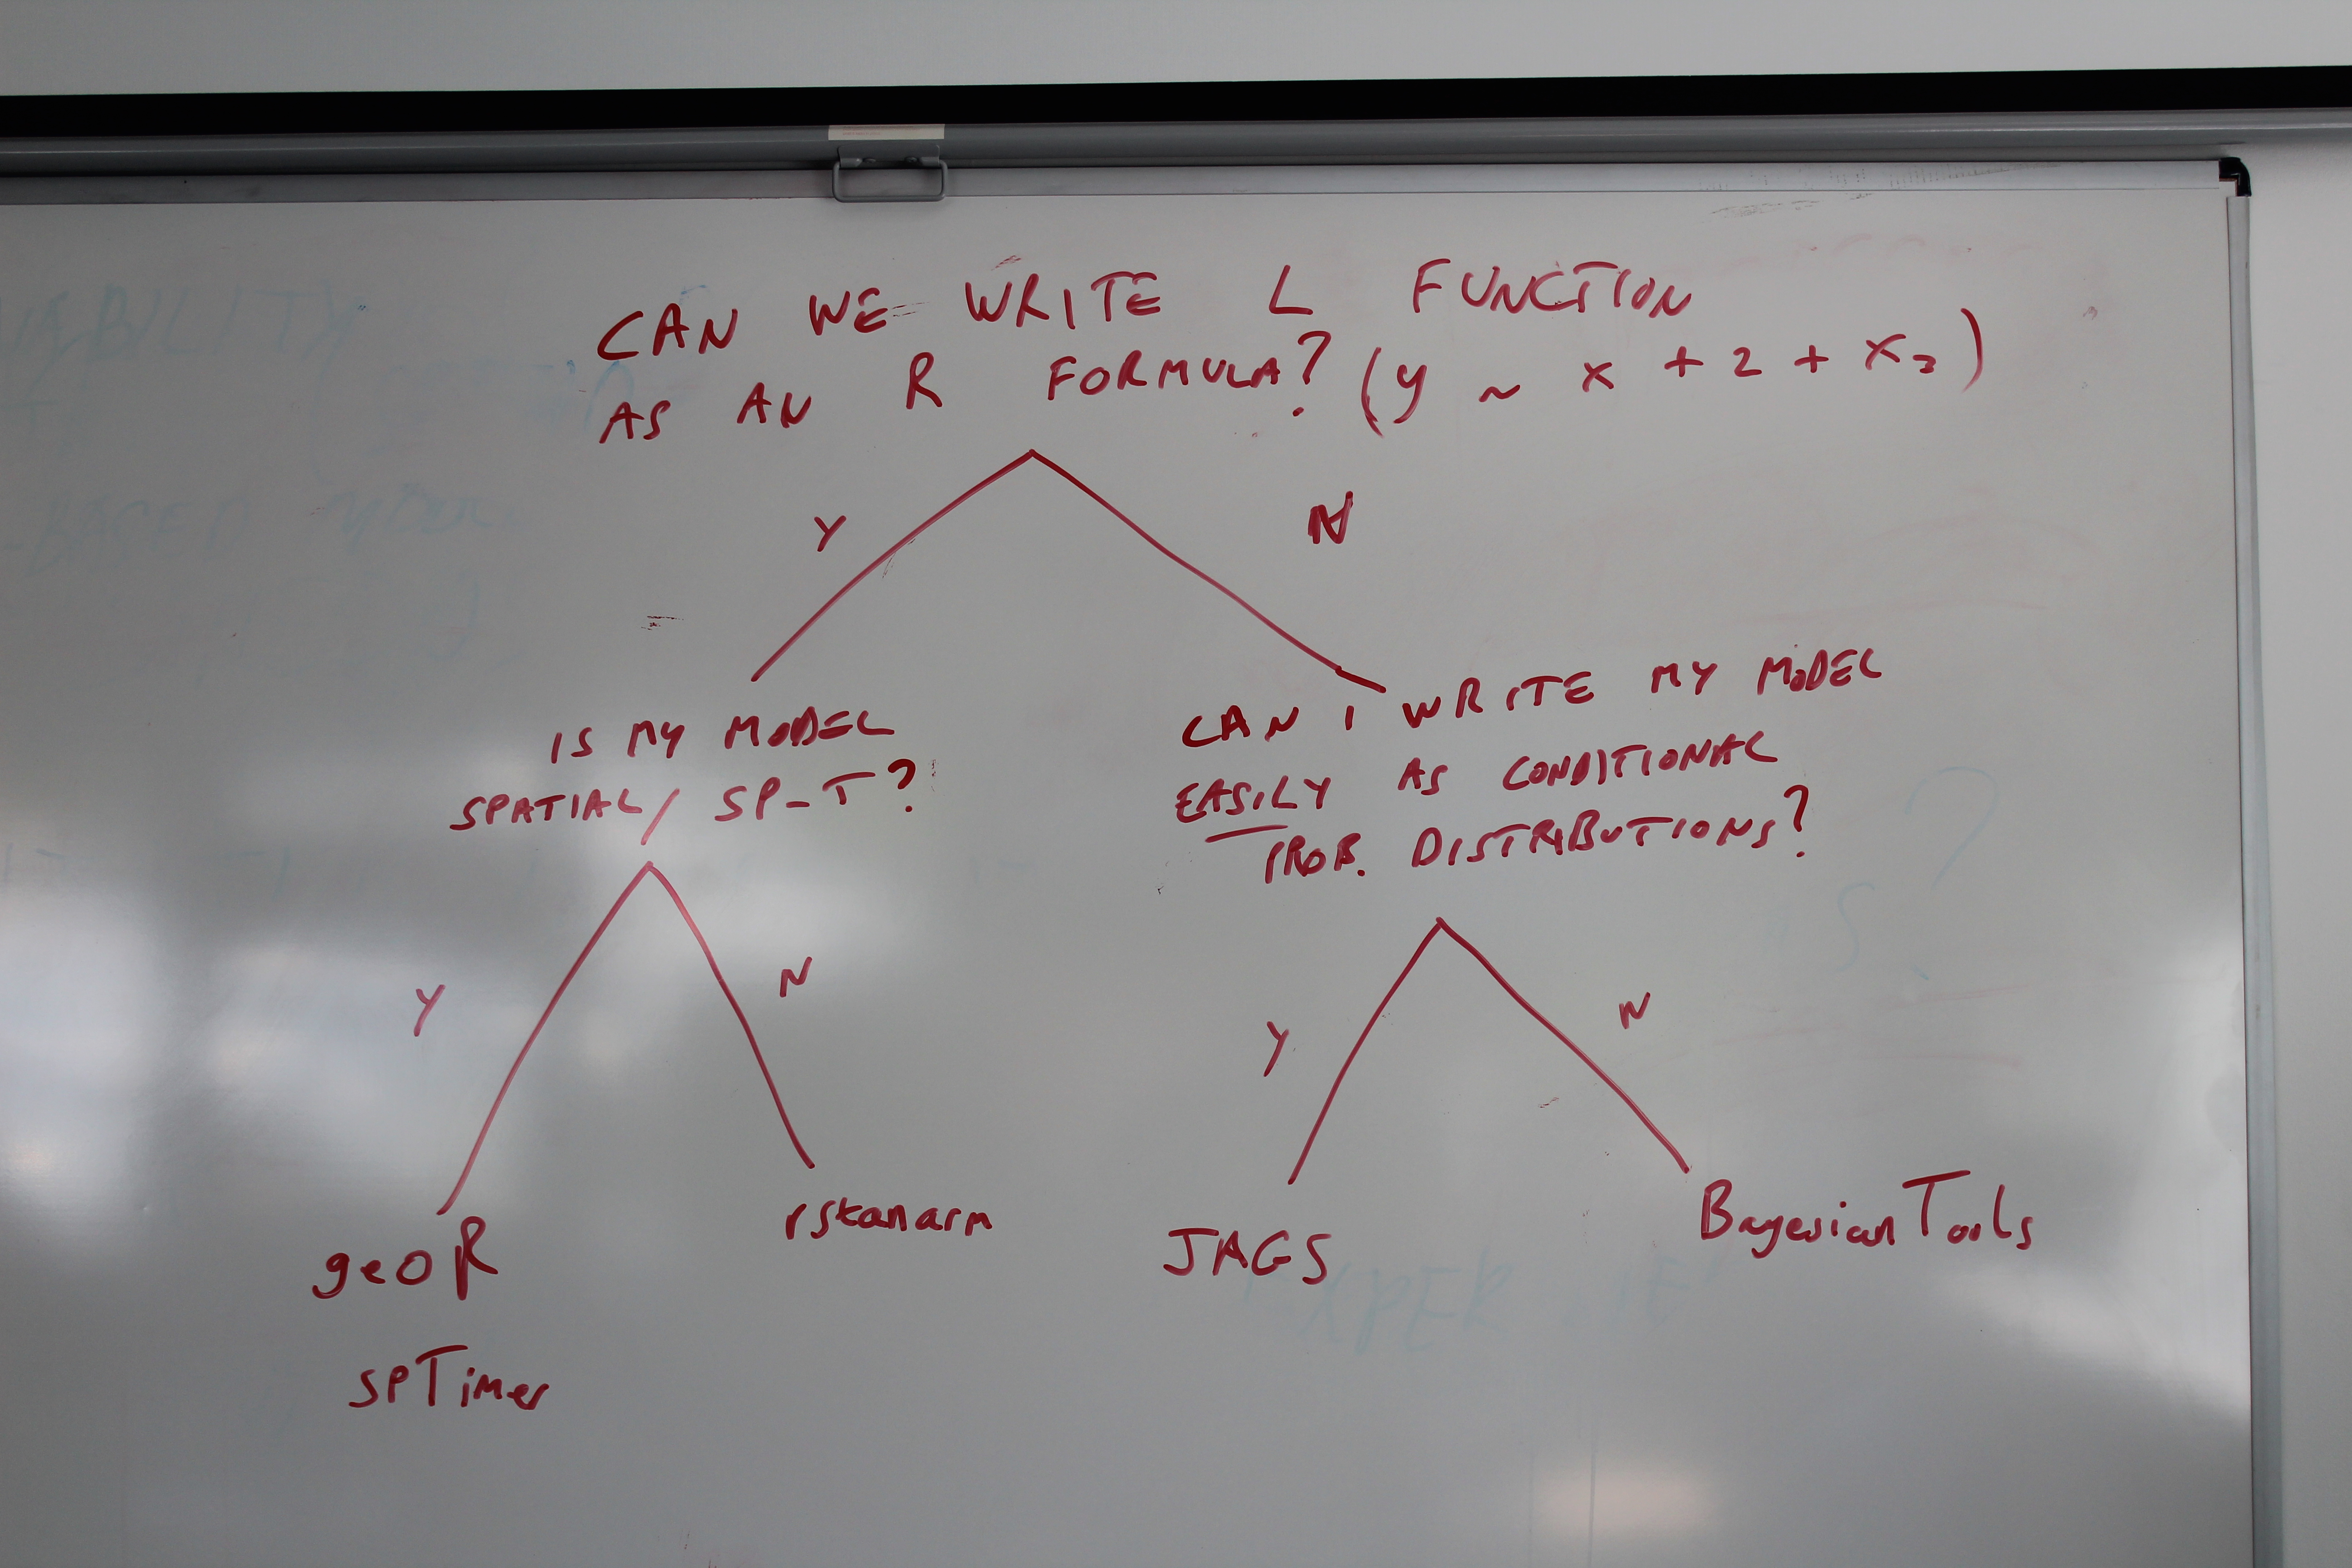 CAN WE WRITE L FUNCTION
AS AN R FORMULA? (y ~ x + 2 + x₃)
Y
N
IS MY MODEL
SPATIAL / SP-T?
CAN I WRITE MY MODEL
EASILY AS CONDITIONAL
PROB. DISTRIBUTIONS?
Y
N
Y
N
geoR
spTimer
rstanarm
JAGS
BayesianTools